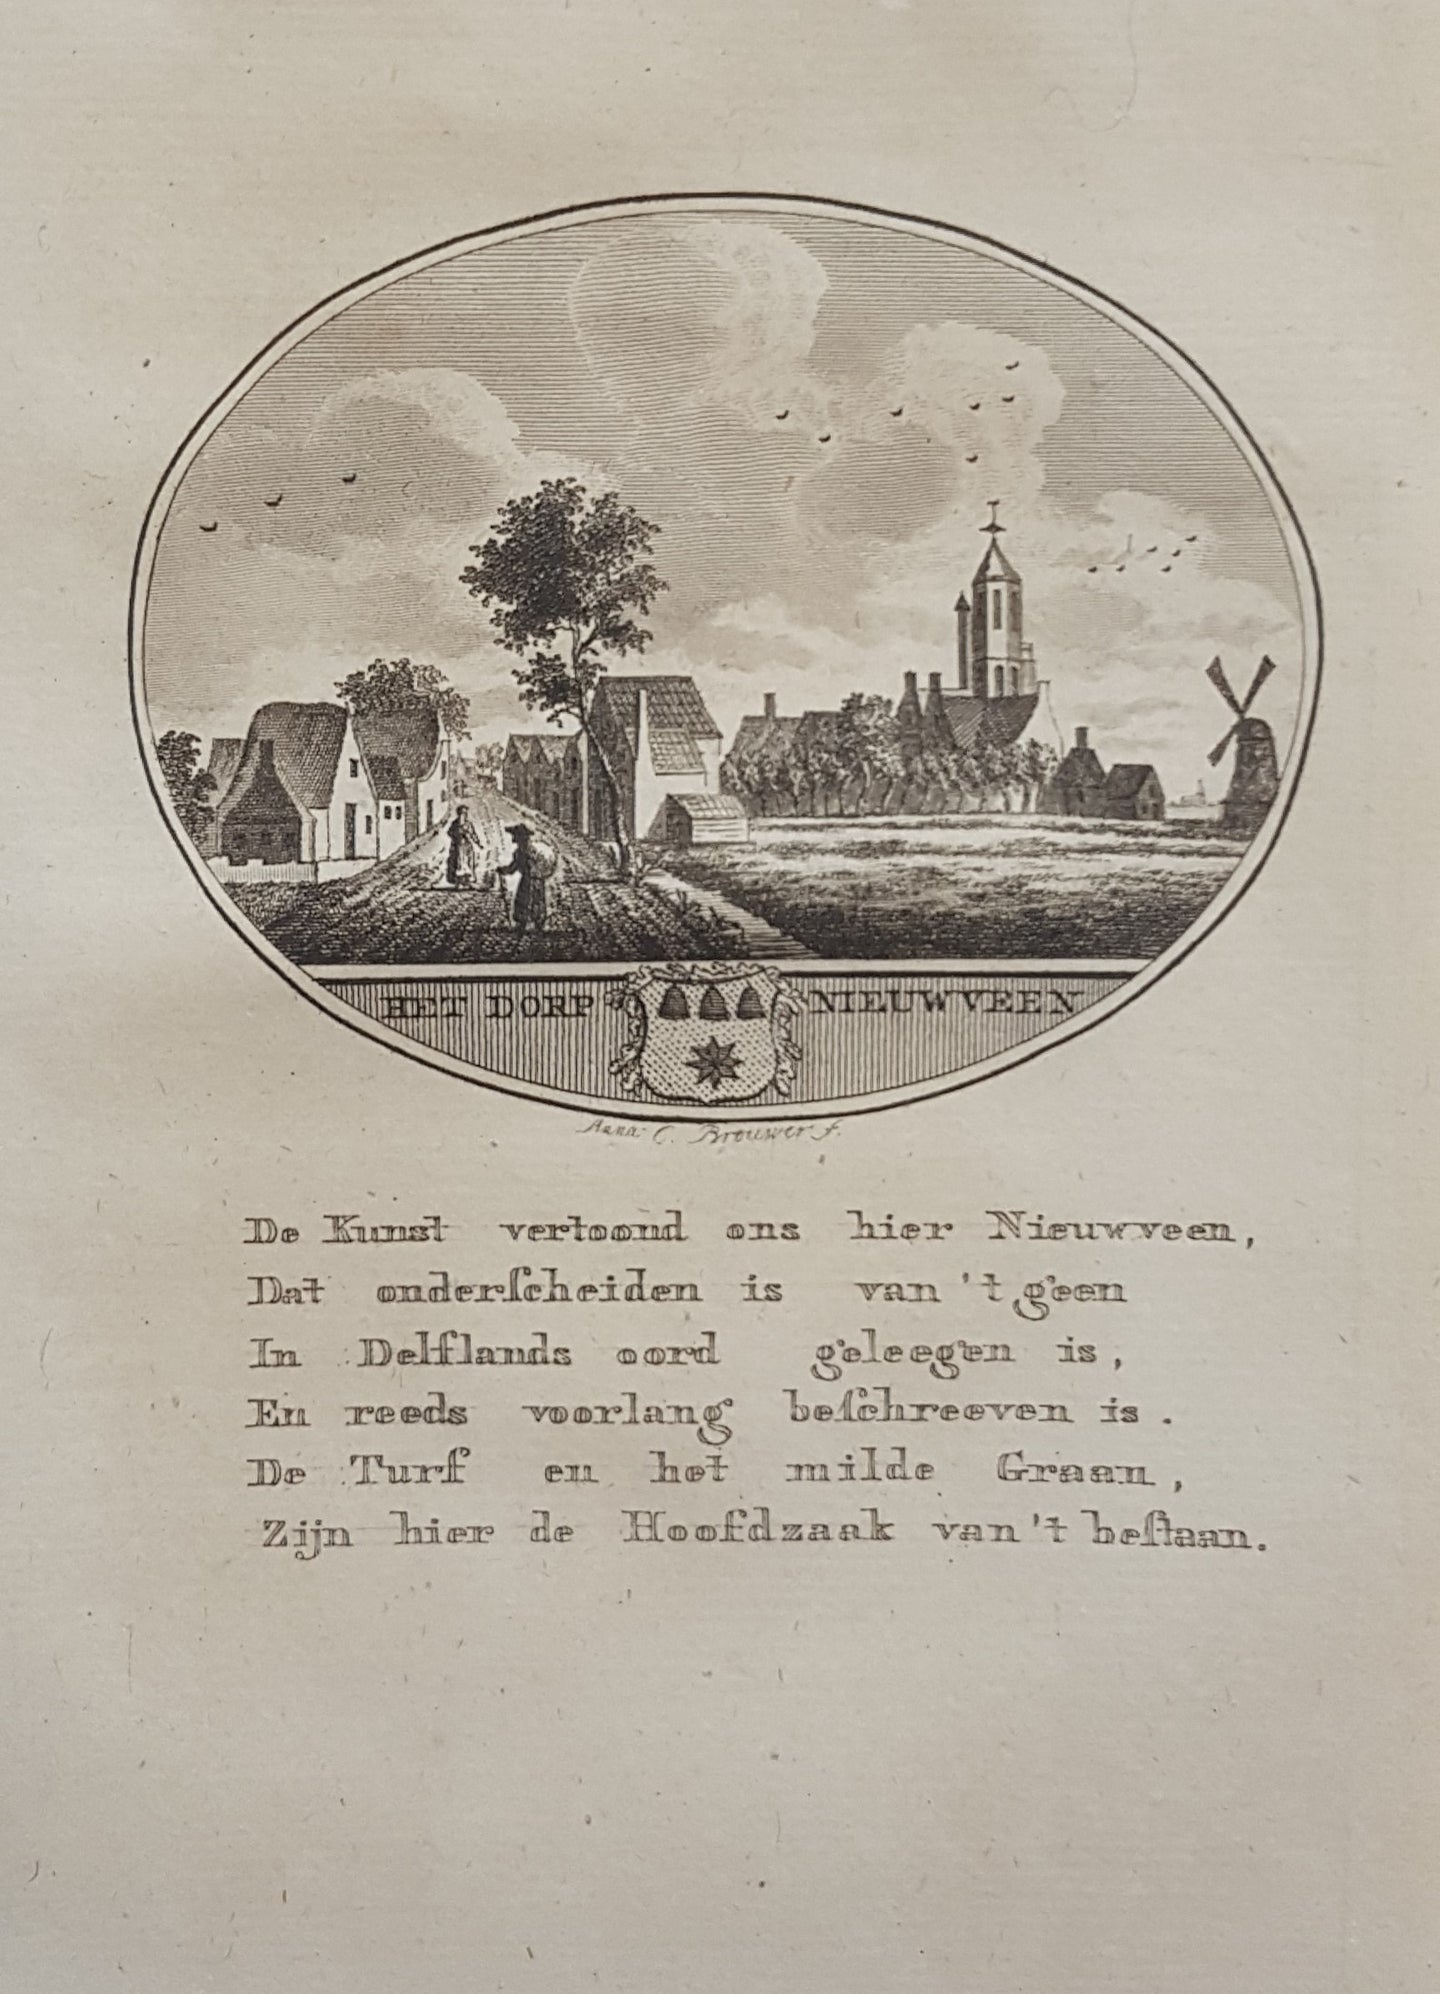 HET DORP NIEUWVEEN
Anna C. Brouwer f.
De Kunst vertoond ons hier Nieuwveen,
Dat onderſcheiden is van 't geen
In Delflands oord geleegen is,
En reeds voorlang beſchreeven is.
De Turf en het milde Graan,
Zijn hier de Hoofdzaak van 't beſtaan.